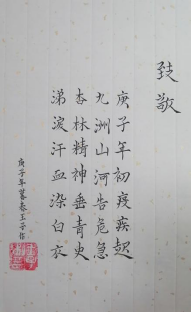 致敬
庚子年初疫疾起
九洲山河告危急
杏林精神垂青史
涕泪汗血染白衣
庚子年暮春王子作